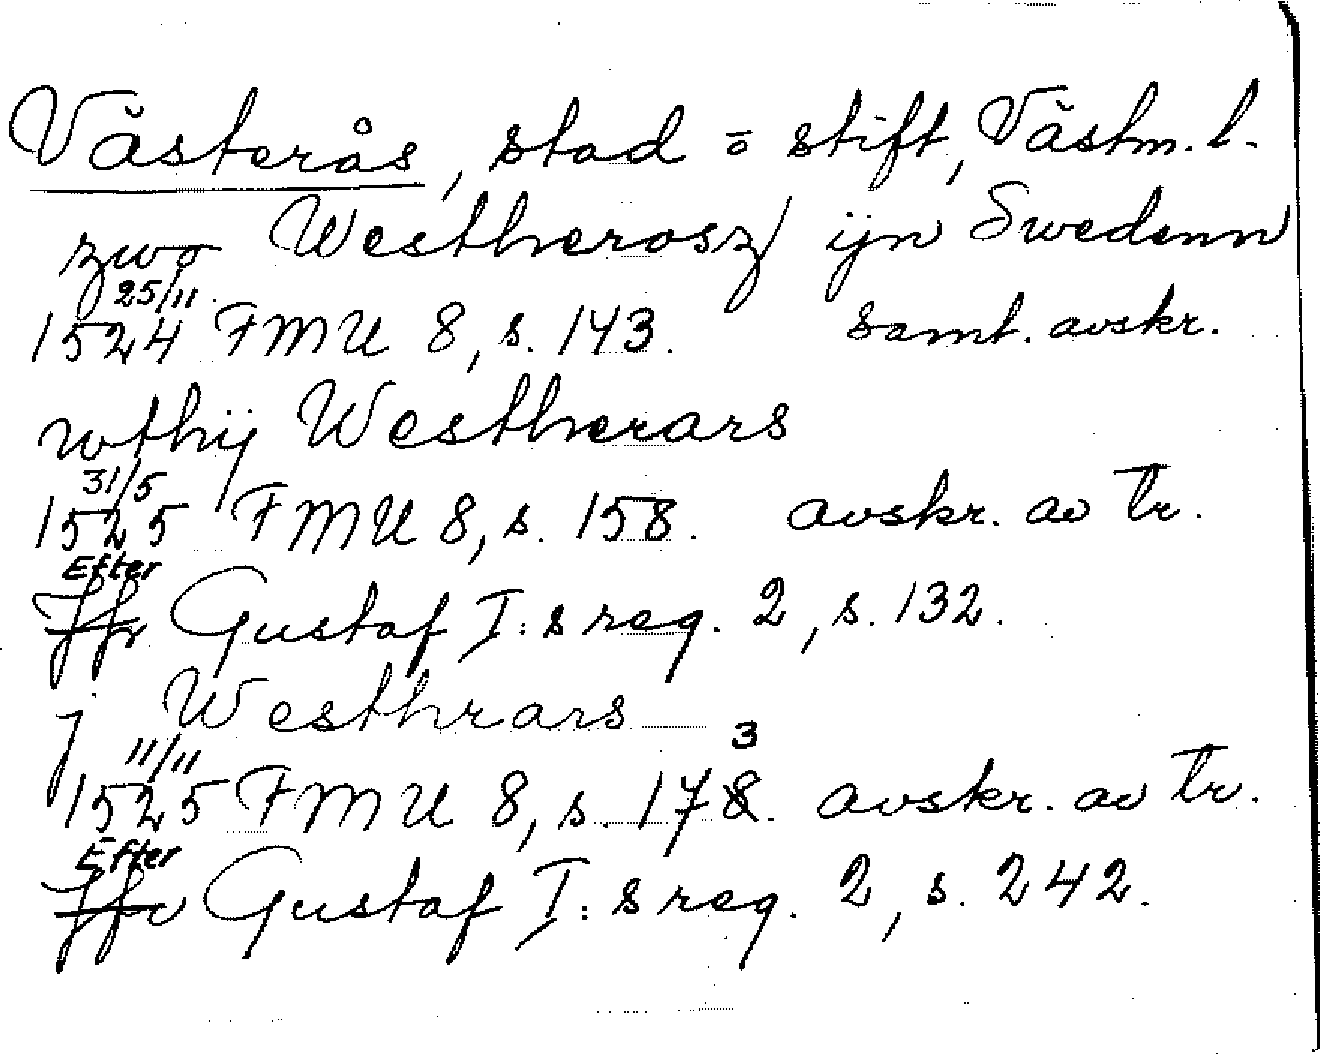 Västerås, stad o stift, Västm. l.
zwo Westherosz/ ijn Swedenn
25/11
1524 FMU 8, s. 143. samt. avskr.
wthij Westherars
31/5
1525 FMU 8, s. 158. avskr. av tr.
Efter
Jfr Gustaf I:s reg. 2, s. 132.
j Westhrars
11/11 3
1525 FMU 8, s. 178. avskr. av tr.
Efter
Jfr Gustaf I:s reg. 2, s. 242.